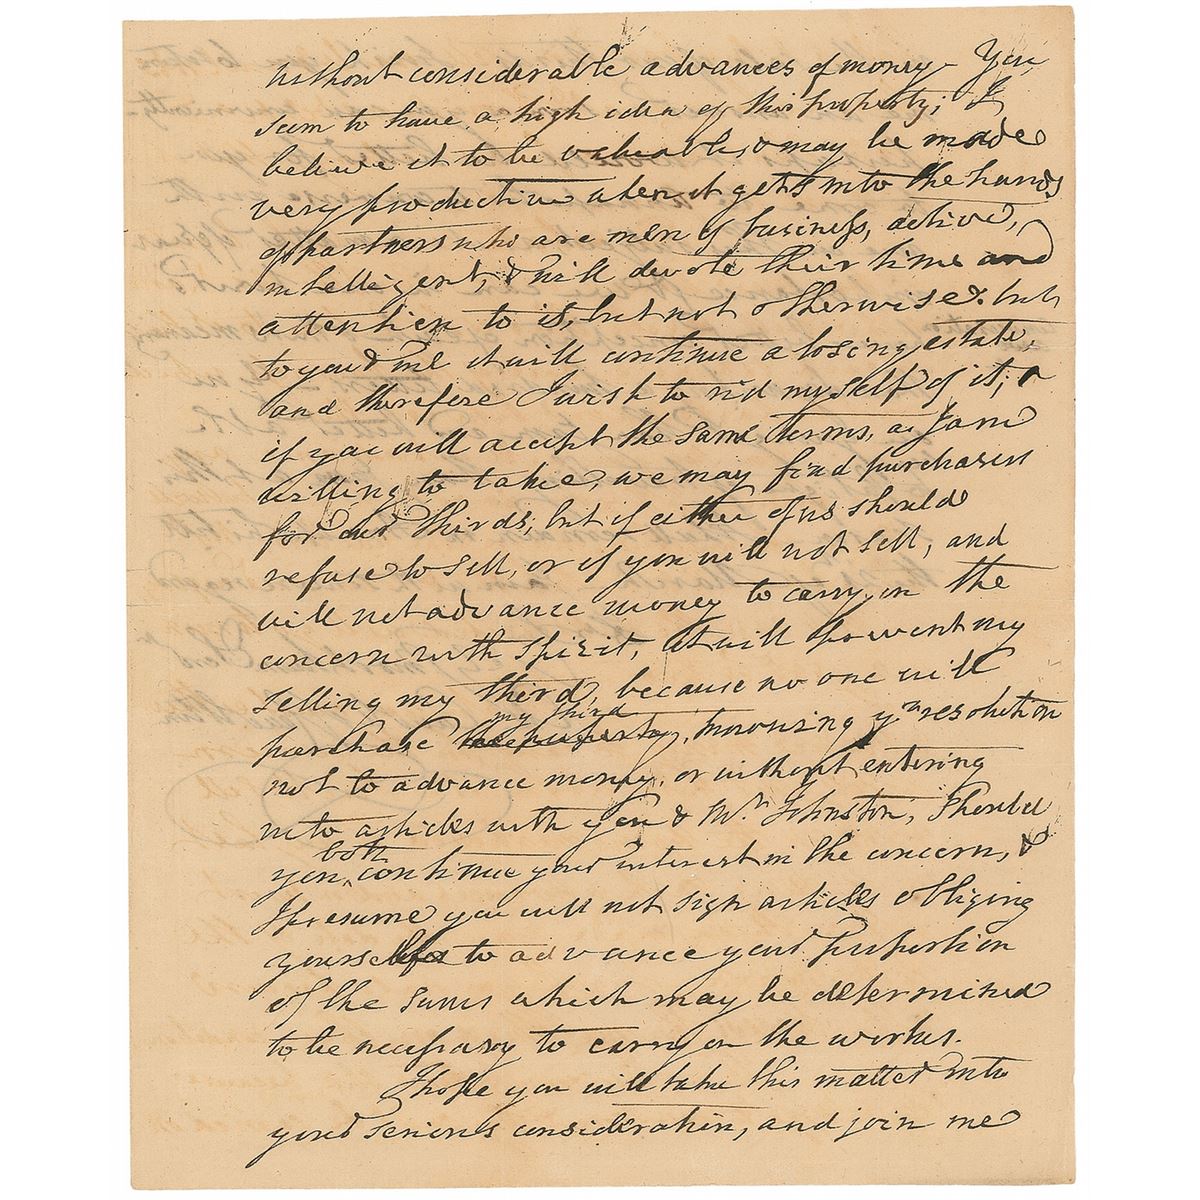 without considerable advances of money - You
seem to have a high idea of this property; I
believe it to be valuable, & may be made
very productive when it gets into the hands
of partners who are men of business, active,
intelligent, & will devote their time and
attention to it, but not otherwise. but
to you & me it will continue a losing estate,
and therefore I wish to rid myself of it;
if you will accept the same terms, as I am
willing to take, we may find purchasers
for our thirds; but if either of us should
refuse to sell, or if you will not sell, and
will not advance money to carry on the
concern with spirit, it will prevent my
selling my third, because no one will
purchase my third, knowing yr resolution
not to advance money, or without entering
into articles with you & Mr. Johnston, should
you both continue your interest in the concern, &
I presume you will not sign articles obliging
yourself to advance your proportion
of the sums which may be determined
to be necessary to carry on the works.
I hope you will take this matter into
your serious consideration, and join me